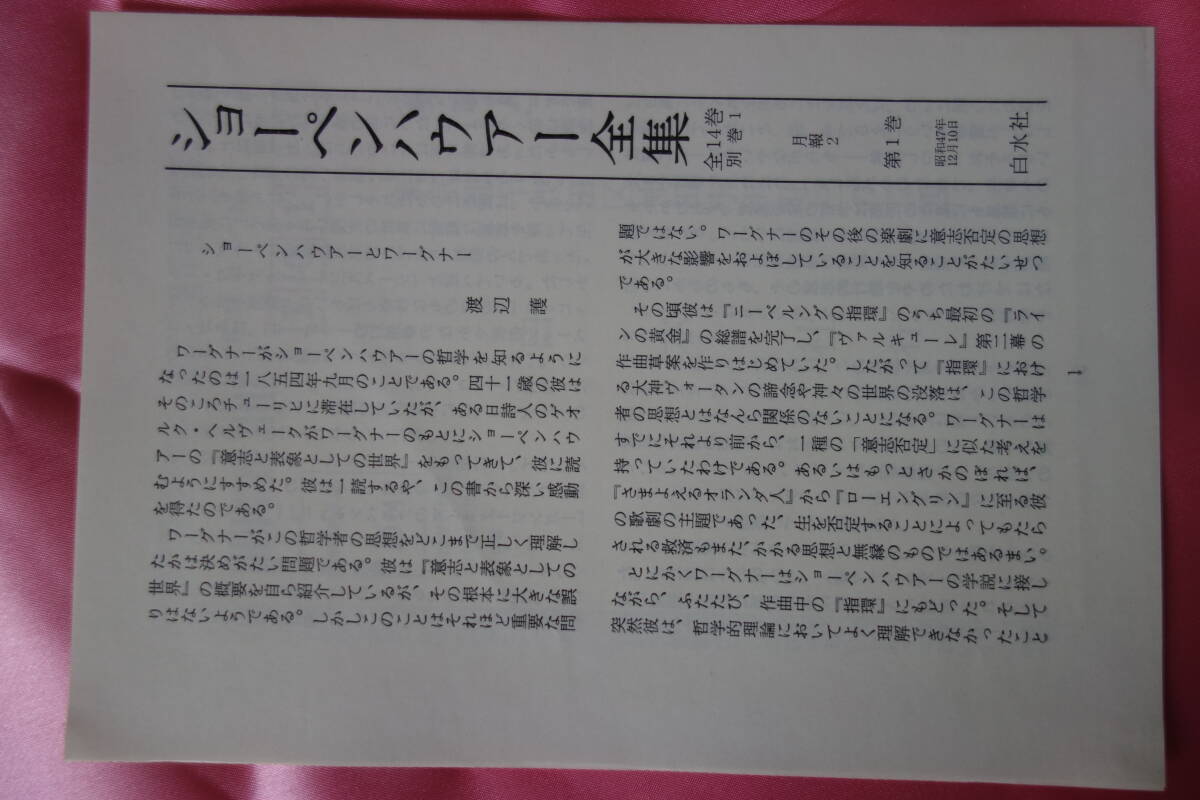 ショーペンハウアー全集
全14巻
別巻1
月報
2
第1巻
昭和47年
12月10日
白水社
ショーペンハウアーとワーグナー
渡辺 護
ワーグナーがショーペンハウアーの哲学を知るように
なったのは一八五四年九月のことである。四十一歳の彼は
そのころチューリヒに滞在していたが、ある日詩人のゲオ
ルク・ヘルヴェークがワーグナーのもとにショーペンハウ
アーの『意志と表象としての世界』をもってきて、彼に読
むようにすすめた。彼は一読するや、この書から深い感動
を得たのである。
ワーグナーがこの哲学者の思想をどこまで正しく理解し
たかは決めがたい問題である。彼は『意志と表象としての
世界』の概要を自ら紹介しているが、その根本に大きな誤
りはないようである。しかしこのことはそれほど重要な問
題ではない。ワーグナーのその後の楽劇に意志否定の思想
が大きな影響をおよぼしていることを知ることがたいせつ
である。
その頃彼は『ニーベルングの指環』のうち最初の『ライ
ンの黄金』の総譜を完了し、『ヴァルキューレ』第二幕の
作曲草案を作りはじめていた。したがって『指環』におけ
る大神ヴォータンの諦念や神々の世界の没落は、この哲学
者の思想とはなんら関係のないことになる。ワーグナーは
すでにそれより前から、一種の「意志否定」に似た考えを
持っていたわけである。あるいはもっとさかのぼれば、
『さまよえるオランダ人』から『ローエングリン』に至る彼
の歌劇の主題であった、生を否定することによってもたら
される救済もまた、かかる思想と無縁のものではあるまい。
とにかくワーグナーはショーペンハウアーの学説に接し
ながら、ふたたび、作曲中の『指環』にもどった。そして
突然彼は、哲学的理論においてよく理解できなかったこと
1